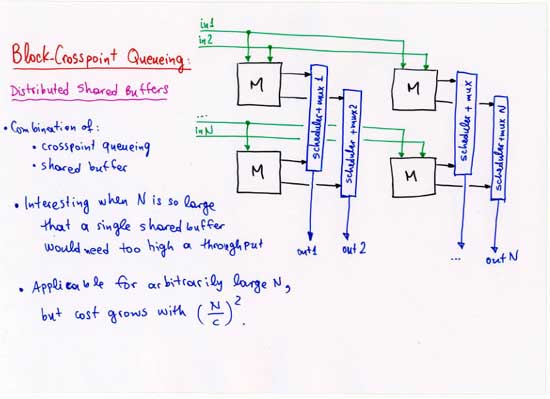 Block-Crosspoint Queueing:
Distributed Shared Buffers
• Combination of:
• crosspoint queueing
• shared buffer
• Interesting when N is so large
that a single shared buffer
would need too high a throughput
• Applicable for arbitrarily large N,
but cost grows with (N/C)².
in1
in2
M
M
scheduler + mux 1
scheduler + mux2
scheduler + mux
scheduler+mux N
...
inN
M
M
out1
out2
...
out N